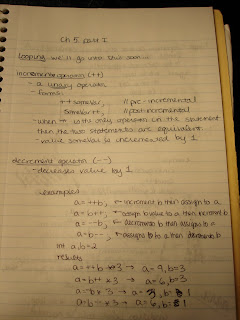 Ch 5 part I
Looping we'll go into this soon...
increment operator (++)
- a unary operator
- forms:
++ someVal; //pre-incremental
someVal++; //post incremental
- when ++ is the only operator on the statement
then the two statements are equivalent.
- value someVal is incremented by 1
decrement operator (--)
- decreases value by 1
examples
a = ++b; ← increment b then assign to a
a = b++; ← assign b value to a then increment b
a = --b; ← decrement b then assigns to a
a = b--; ← assigns b to a then decrement b
int a, b=2
results
a = ++b *3 → a = 9, b=3
a = b++ *3 → a = 6, b=3
a = --b *3 → a = 3, b=1
a = b-- *3 → a = 6, b=1